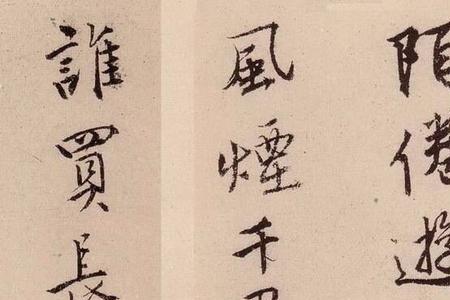 陌倦遊
風煙千
誰買長